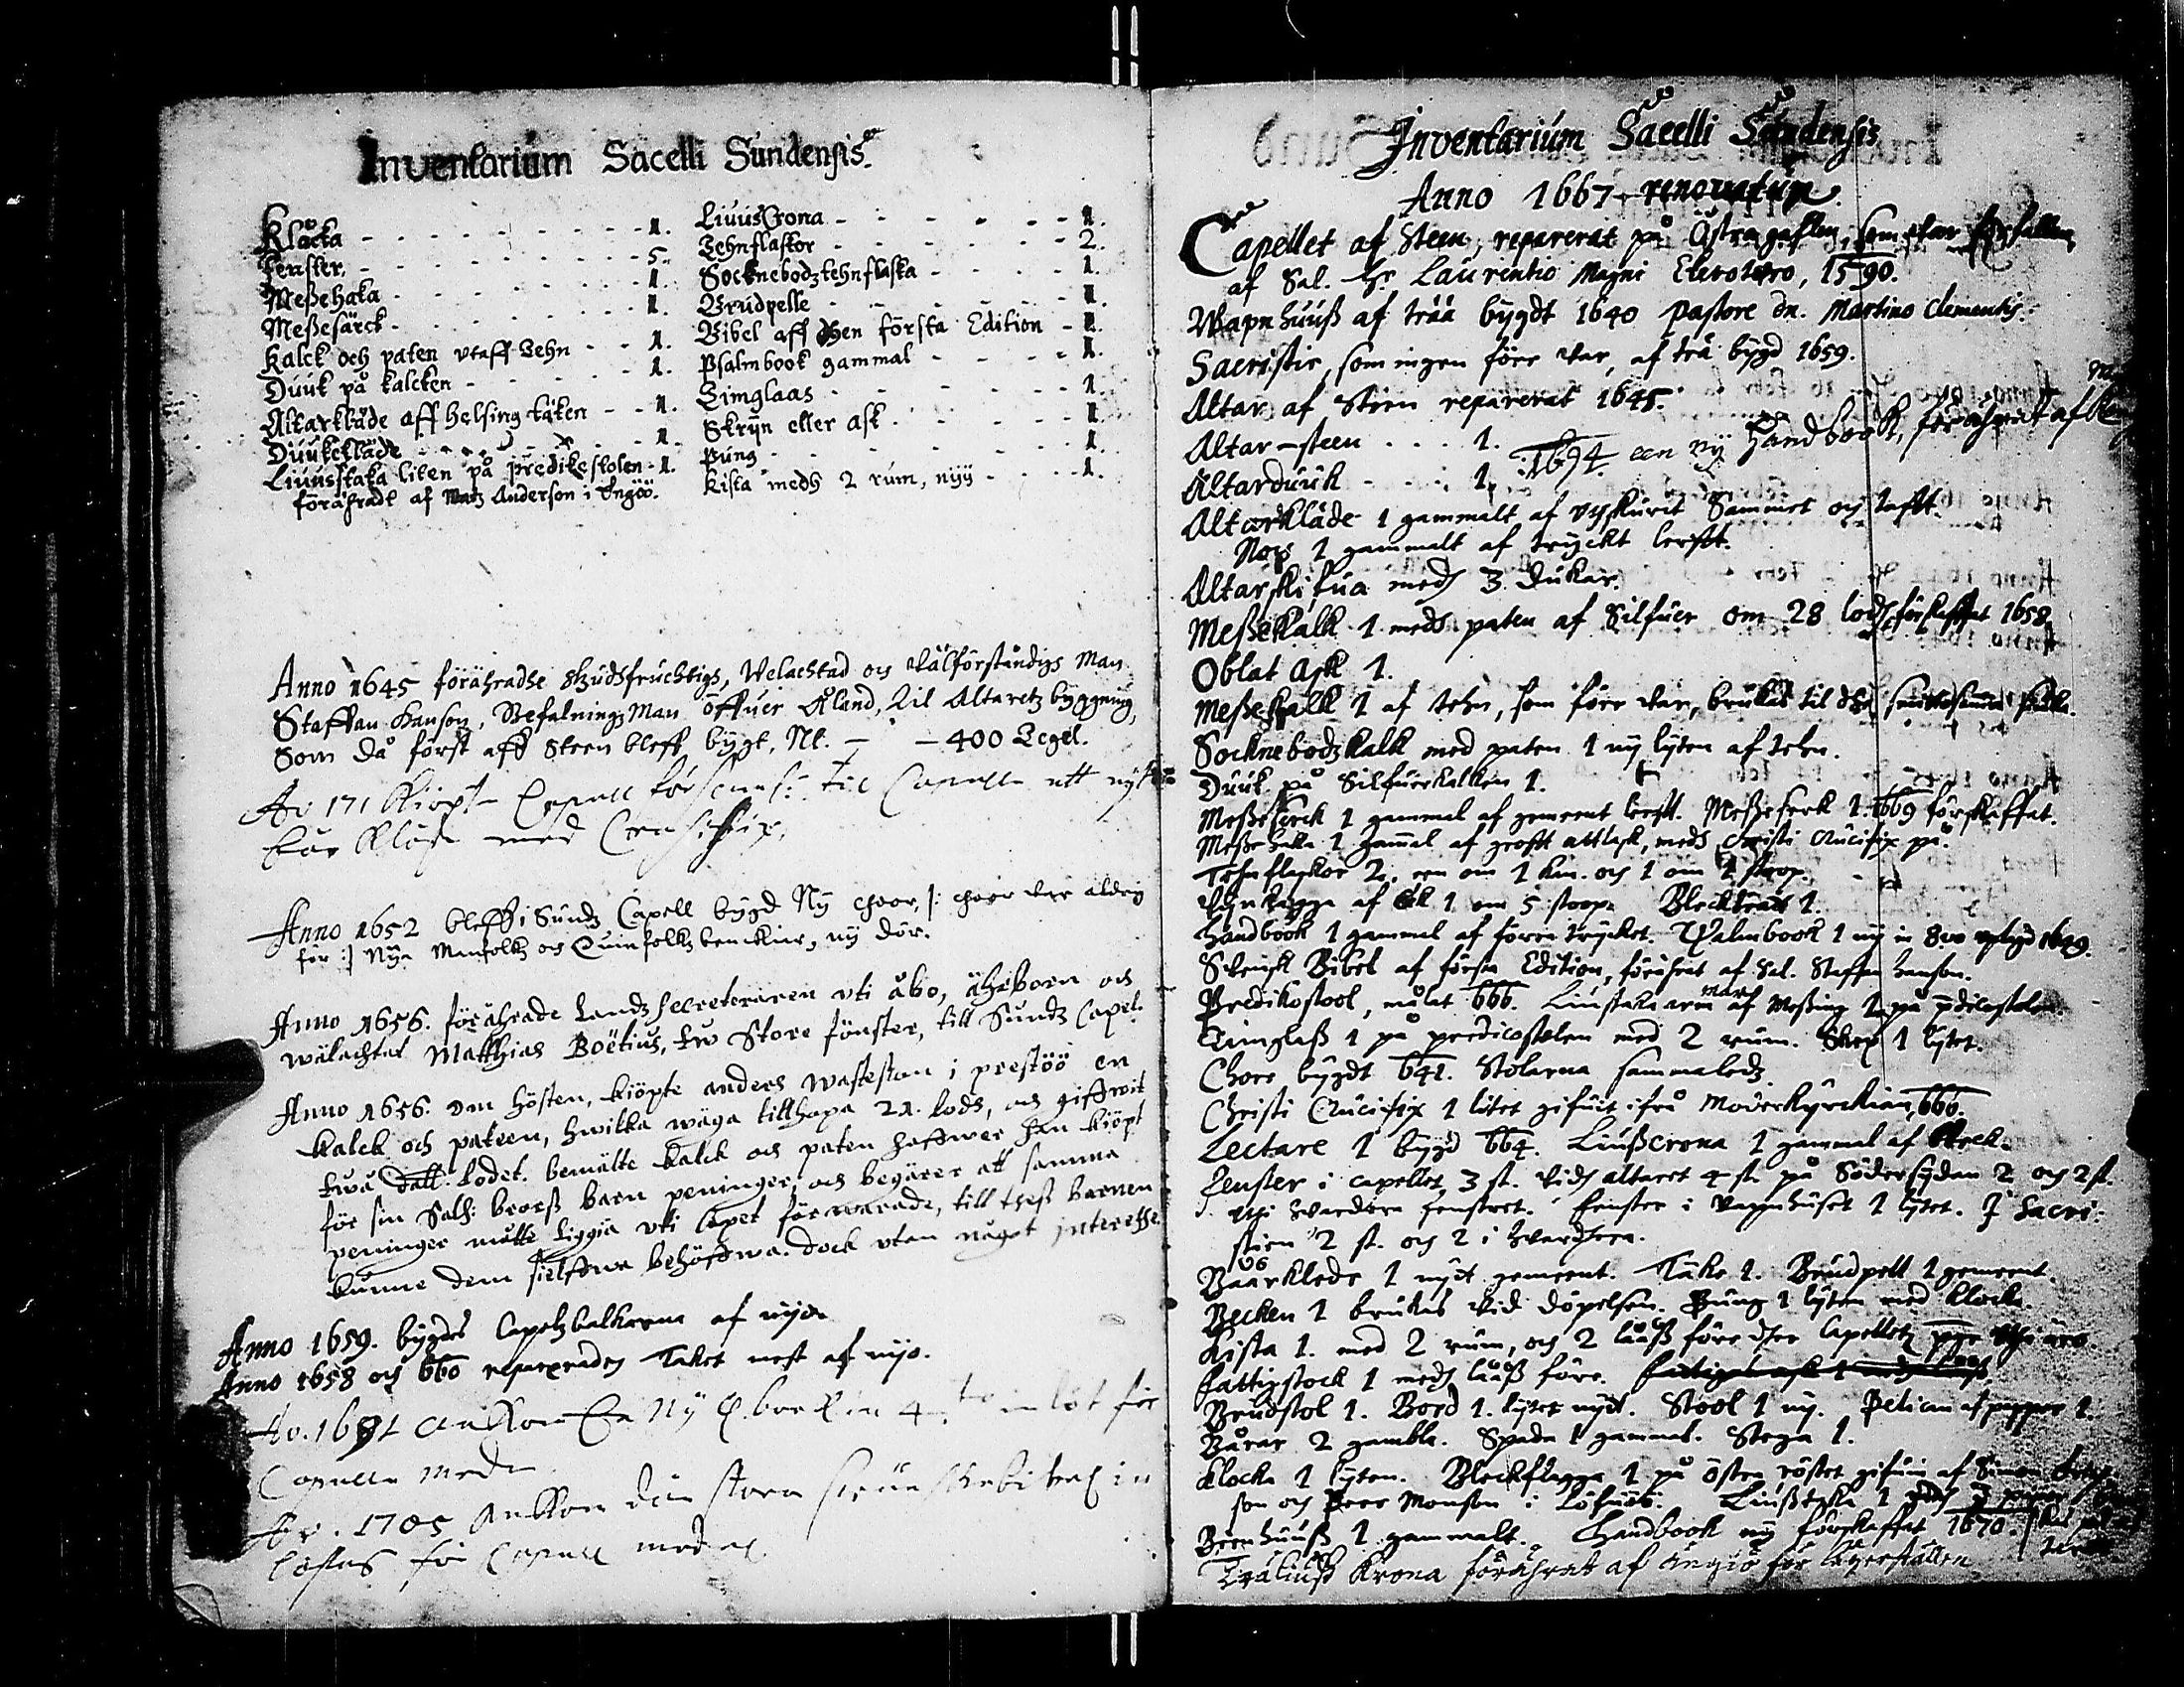 Inventarium Sacelli Sundensis.
Klåcka - - - - - - - - - 1.
Fenster, - - - - - - - - 5.
Meßehaka - - - - - - - 1.
Meßesärck - - - - - - - 1.
Kalck och paten vtaff Tehn - - 1.
Duuk på kalcken - - - - - 1.
Altarkläde aff helsing täken - - 1.
Duukekläde - - - - - - 1.
Liuusstaka liten på predikestolen - 1.
förähradt af Matz Anderson i Ingöö.
LiuusCrona - - - - - - 1.
Tehnflaskor - - - - - - 2.
Socknebodz tehnflaska - - - - 1.
Brudpelle - - - - - - 1.
Bibel aff then första Edition - 1.
Psalmbook gammal - - - - 1.
Timglaas - - - - - - 1.
Skryn eller ask - - - - - 1.
Pung - - - - - - - 1.
Kista medh 2 rum, nyy - - - 1.
Anno 1645 förähradhe Gudhfruchtigh, Welachtad och Wälförståndigh Man
Staffan Hanson, Befalningz Man öffuer Åland, Til Altaretz byggning,
Som då först aff Steen bleff bygt, Nl. - - 400 Tegel.
Ao 171 Kiöpte Capell til Capelle ett nytt
Bår Kläde med
Anno 1652 bleff i Sundz Capell bygd Ny choor, /: choor var aldrig
för :/ Nya Manfolkz och Quinfolkz benckier, ny dör.
Anno 1656. förährade Landz Secreteraren vti åbo, ähreborn och
wälachtat Matthias Boëtius, tw Store fönster, till Sundz Capel.
Anno 1656. om hösten, kiöpte anders wastesson i prestöö en
Kalck och pateen, hwilka wäga tillhopa 21. lodh, och giffwit
twå dall. lodet. bemälte kalck och paten haffwer han kiöpt
för sin Salh: brorß barn peninger, och begärer att samma
peninger måtte liggia vti Capet förwarade, till theß barnen
kunne dem sielffwa behöffwa. Dock vtan något interesse.
Anno 1659. bygdes Capelzbalkerna af nyo.
Anno 1658 och 660 repareradhes Taket mest af nyo.
Ao. 1684 ankom En Ny in 4to för
Capelle medn
Ao. 1705 Ankom den stora in
för Capell medel
Inventarium Sacelli Sundensis
Anno 1667 renovatum.
Capellet af Steen, reparerat på Östra gaflen, som var förfallen
af Sal. Hr Laurentio Magni, 1590.
Wapnhuuß af trää bygdt 1640 pastore dn. Martino Clementis.
Sacristie, som ingen förr var, af trä bygd 1659.
Altar af Steen reparerat 1645.
Altar-steen . . . 1.
1694 een ny Handbook, förährat af
Altarduuk - . . . 1.
Altarkläde 1 gammalt af vpskurit Sammet och taft.
Noch 1 gammalt af tryckt lerfft.
Altarskifua medh 3 Dukar.
Meßekalk 1 medh paten af Silfuer om 28 lodh, förskaffat 1658.
Oblat Ask 1.
Meßekalk 1 af tehn, som förr var, brukas til the
Socknebodzkalk med paten 1 ny lyten af tehn.
Duuk på Silfuerkalken 1.
Meßeserk 1 gammal af gemeent lerfft. Meßeserk 1. 1669 förskaffat.
Meßehaka 1 gamal af grofft attlask, medh Christi Crucifix på.
Tehnflaskor 2, een om 1 kan. och 1 om 1 stoop.
Vijnkagge af eek 1 om 5 stoop.
Handbook 1 gammal af förra trycket. Psalmbook 1 ny in 8vo 1649.
Swensk Bibel af första Edition, förährat af Sal. Staffan Hanson.
Predikostool, målat 666. Liusstaka arm af Meßing 1 på predicostolen.
Timglaß 1 på predicostolen med 2 rum. Skep 1 lytet.
Chore bygdt 641. Stolarna sammaledz.
Christi Crucifix 1 litet gifuit ifrå Moderkyrckian, 666.
Lectare 1 bygd 664. Liußcrona 1 gammal af
Fenster i capellet 3 st. vidh altaret 4 st. på Södersydan 2 och 2 st.
vthi hvardera fenstret. Fenster i Vapnhuset 1 lytet. I Sacri-
stien 2 st. och 2 i hvardhera.
Baarklede 1 nytt gemeent. Täke 1. Brudpell 1 gemeent.
Becken 1 brukas vid döpelsen. Pung 1 lyten med klocka.
Kista 1. med 2 rum, och 2 lååß före ther Capelletz
Fattigstock 1 medh lååß före.
Brudstol 1. Bord 1. lytet nytt. Stool 1 ny. Pelican af papper 1.
Bårar 2 gambla. Spada 1 gammal. Stega 1.
Klocka 1 lyten. Bleckflagga 1 på östra röstet gifuin af Simon
son och Peer Monson i
Beenhuuß 1 gammalt. Handbook ny förskaffat 1670.
Krona förährat af för lägerställen